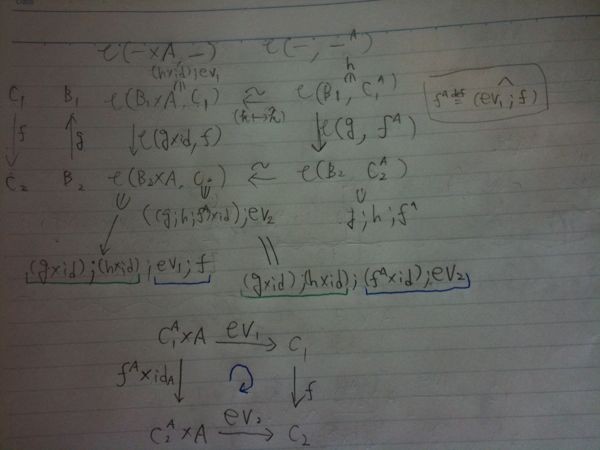 ℓ(−×A, −) ℓ(−, −^A)
(h×id);ev₁ h
C₁ B₁ ℓ(B₁×A, C₁) ≃ ℓ(B₁, C₁^A) f^A ≝ (ev₁;f)^
↓f ↑g ↓ℓ(g×id, f) ↓ℓ(g, f^A)
C₂ B₂ ℓ(B₂×A, C₂) ≃ ℓ(B₂, C₂^A)
((g;h;f^A)×id);ev₂ g;h;f^A
(g×id);(h×id);ev₁;f
(g×id);(h×id);(f^A×id);ev₂
C₁^A×A ev₁→ C₁
f^A×id_A↓ ↓f
C₂^A×A ev₂→ C₂